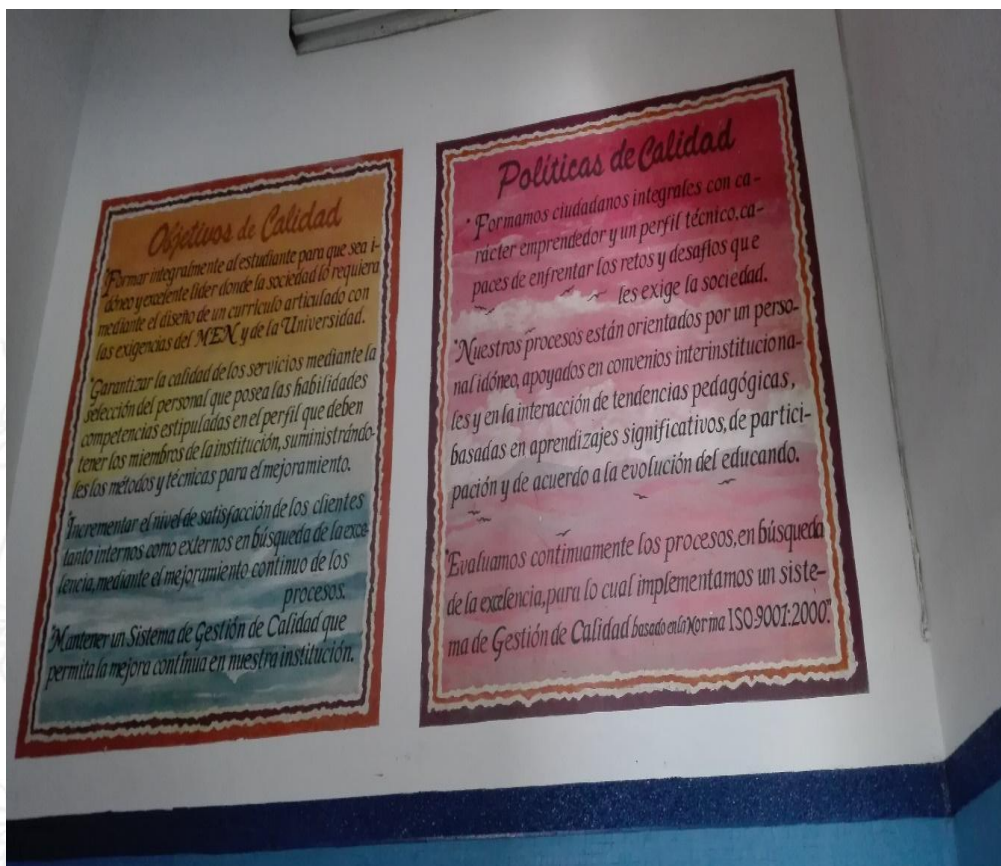 Objetivos de Calidad
"Formar integralmente al estudiante para que sea i-
dóneo y excelente lider donde la sociedad lo requiera
mediante el diseño de un currículo articulado con
las exigencias del MEN y de la Universidad.
"Garantizar la calidad de los servicios mediante la
selección del personal que posea las habilidades
competencias estipuladas en el perfil que deben
tener los miembros de la institución, suministrándo-
les los métodos y técnicas para el mejoramiento.
"Incrementar el nivel de satisfacción de los clientes
tanto internos como externos en búsqueda de la exce-
lencia, mediante el mejoramiento continuo de los
procesos.
"Mantener un Sistema de Gestión de Calidad que
permita la mejora continua en nuestra institución.
Políticas de Calidad
"Formamos ciudadanos integrales con ca-
rácter emprendedor y un perfil técnico, ca-
paces de enfrentar los retos y desafíos que
les exige la sociedad.
"Nuestros procesos están orientados por un perso-
nal idóneo, apoyados en convenios interinstituciona-
les y en la interacción de tendencias pedagógicas,
basadas en aprendizajes significativos, de partici-
pación y de acuerdo a la evolución del educando.
"Evaluamos continuamente los procesos, en búsqueda
de la excelencia, para lo cual implementamos un siste-
ma de Gestión de Calidad basado en la Norma ISO:9001:2000."